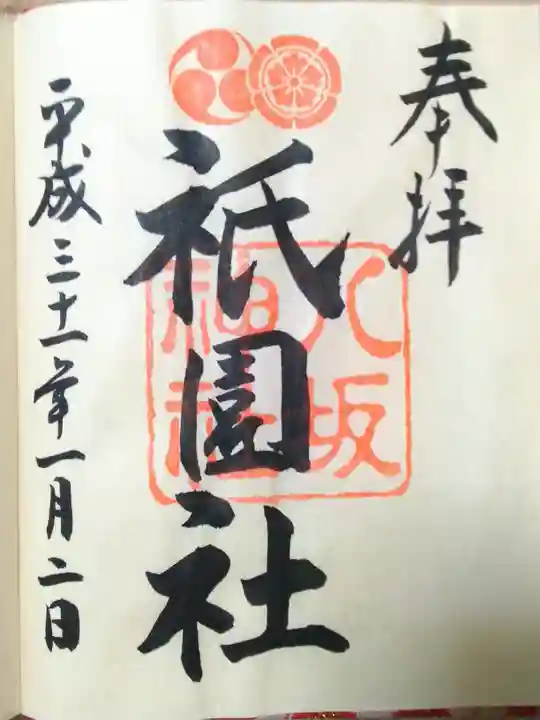 奉拝
八坂
神社
祇園社
平成三十一年一月二日